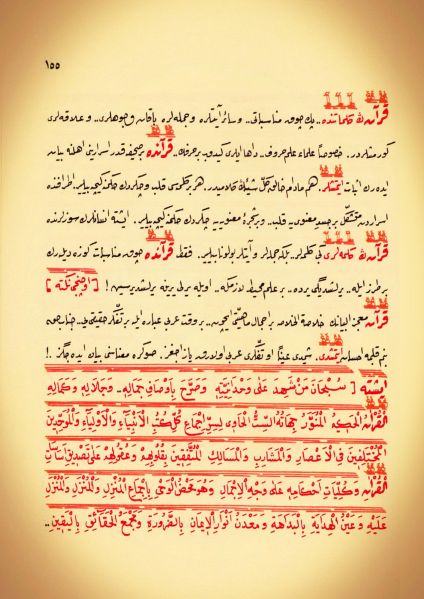 ١٥٥
قرآن ڭ كلماتنده.. پك چوق مناسباتی.. و سائر آيتلره و جمله لره باقان وجوهلری.. و علاقه لری
كورمشلردر. خصوصاً علماء علم حروف.. داها ايلری كيدوب بر حرف قرآنده بر صحيفه قدر اسرارينی اهلنه بيان
ايده رك اثبات ايتمشلر. هم مادام خالق كل شيئڭ كلاميدر. هر بر كلمه سی قلب و چكردك حكمنه كچه بيلير. اطرافنده
اسراردن متشكل بر جسد معنوی يه قلب.. و بر شجرۀ معنويه يه چكردك حكمنه كچه بيلير. ايشته انسانلرڭ سوزلرنده
قرآن ڭ كلمه لری كبی كلمه لر.. بلكه جمله لر و آيتلر بولونابيلير. فقط قرآنده چوق مناسبات كوزه ديله رك
بر طرز ايله.. يرلشديگی يرده.. بر علم محيط لازمكه.. اويله يرلی يرينه يرلشديرسين ! [ اوچنجی نكته ]
قرآن معجز البيانڭ خلاصة الخلاصه بر اجمال ماهيتنی.. بر وقت عربی عباره ايله بر تفكر حقيقی يی.. جناب حق
بنم قلبمه احسان ايتمشدی. شمدی عيناً او تفكری عربی اولارق يازاجغز. صوكره معناسنی بيان ايده جگز .!
ايشته [ سُبْحَانَ مَنْ شَهِدَ عَلَى وَحْدَانِيَّتِهِ وَصَرَّحَ بِأَوْصَافِ جَمَالِهِ.. وَجَلَالِهِ وَكَمَالِهِ
اَلْقُرْآنُ الْحَكِيمُ الْمُنَوَّرُ جِهَاتُهُ السِّتُّ الْحَاوِي لِسِرِّ إِجْمَاعِ كُلِّ كُتُبِ الْأَنْبِيَاءِ وَالْأَوْلِيَاءِ وَالْمُوَحِّدِينَ
الْمُخْتَلِفِينَ فِي الْأَعْصَارِ وَالْمَشَارِبِ وَالْمَسَالِكِ الْمُتَّفِقِينَ بِقُلُوبِهِمْ وَعُقُولِهِمْ عَلَى تَصْدِيقِ أَسَاسَاتِ
الْقُرْآنِ وَكُلِّيَّاتِ أَحْكَامِهِ عَلَى وَجْهِ الْإِجْمَالِ وَهُوَ مَحْضُ الْوَحْيِ بِإِجْمَاعِ الْمُنْزِلِ وَالْمُنْزَلِ وَالْمُنْزَلِ
عَلَيْهِ وَعَيْنُ الْهِدَايَةِ بِالْبَدَاهَةِ وَمَعْدَنُ أَنْوَارِ الْإِيمَانِ بِالضَّرُورَةِ وَمَجْمَعُ الْحَقَائِقِ بِالْيَقِينِ..